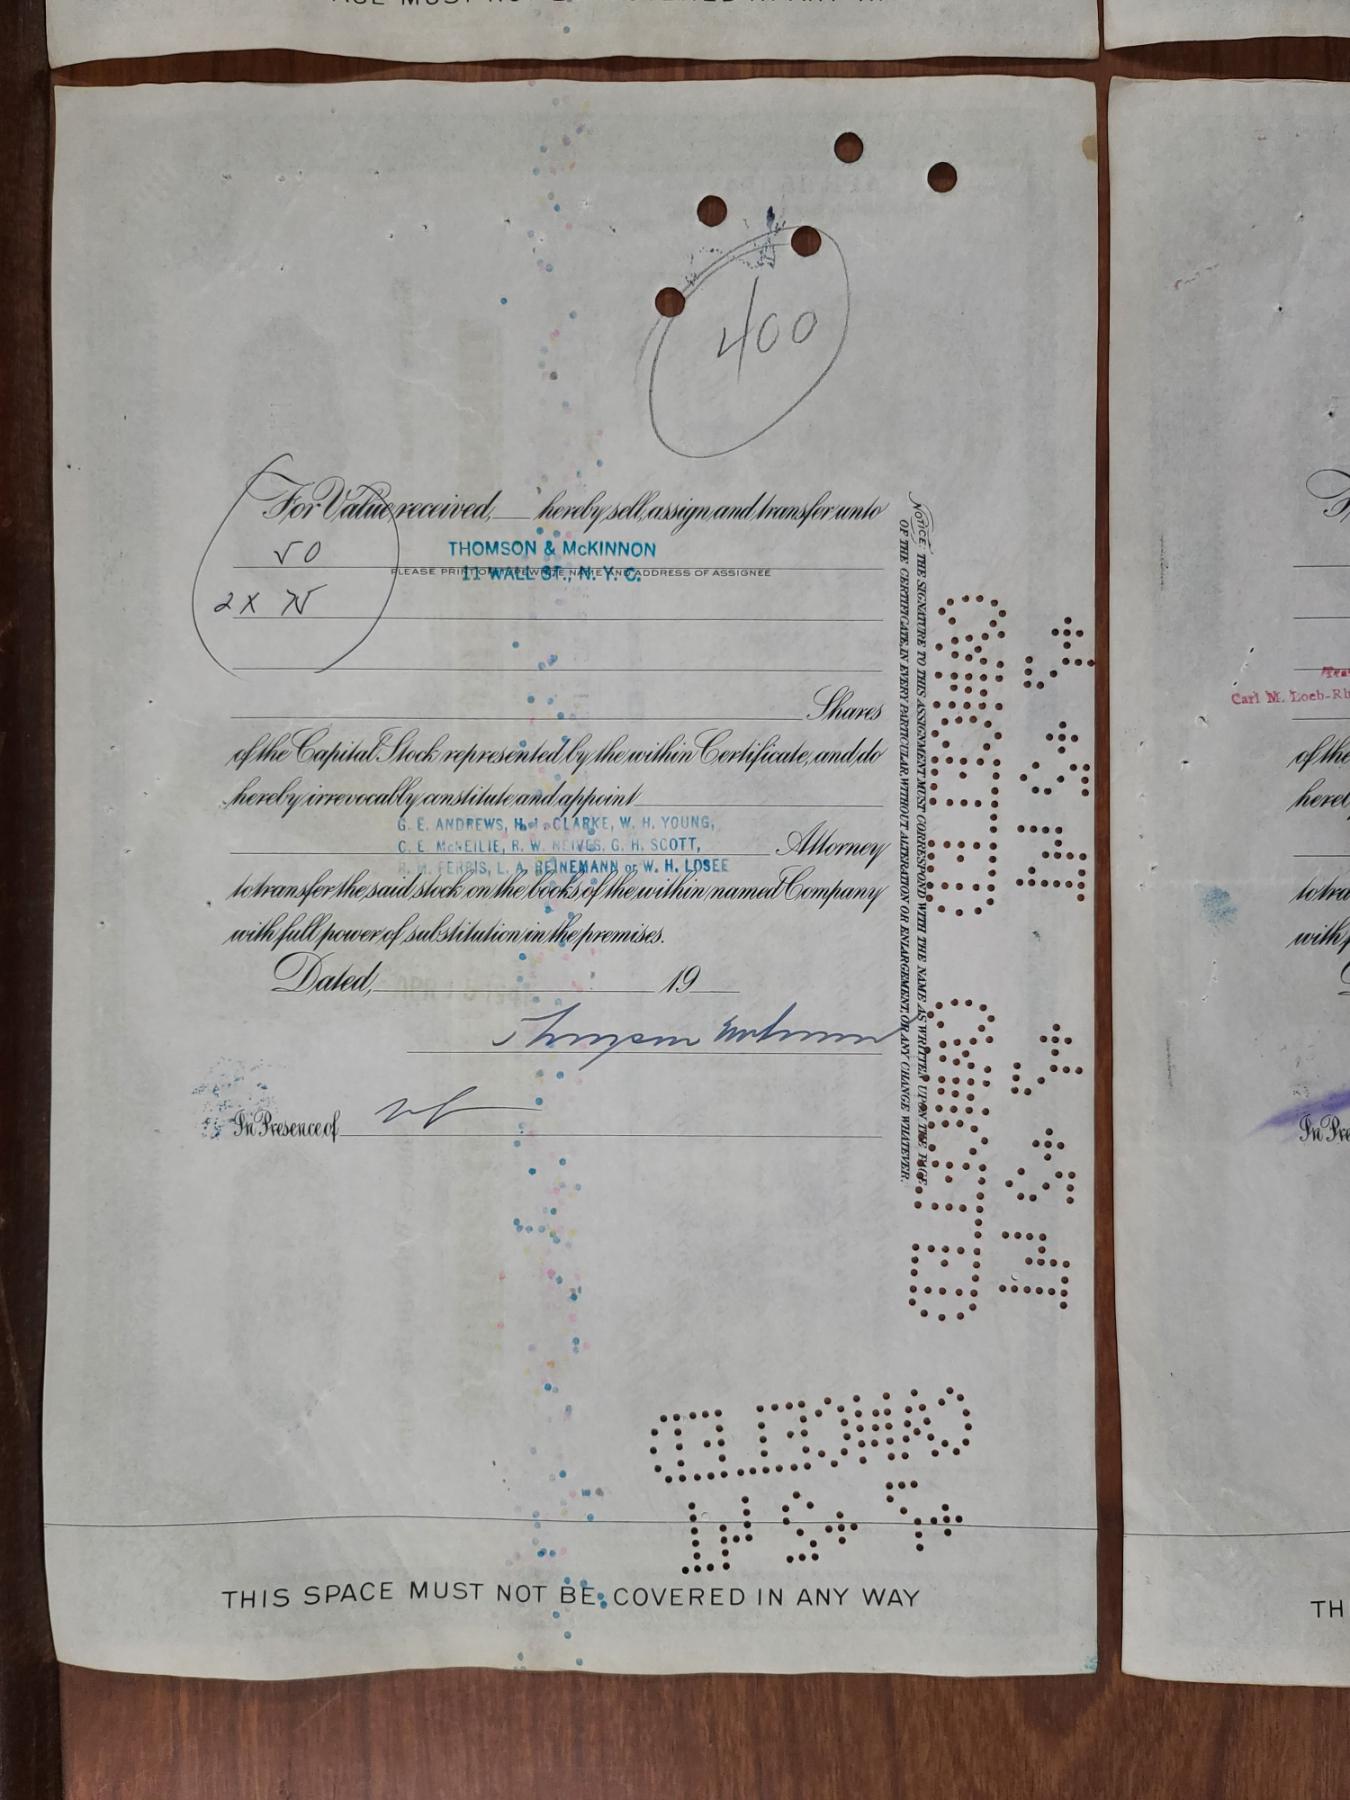 400
For Value received, hereby sell, assign and transfer unto
50
THOMSON & McKINNON
PLEASE PRINT OR TYPEWRITE NAME AND ADDRESS OF ASSIGNEE
11 WALL ST., N. Y. C.
2 X 75
Shares
of the Capital Stock represented by the within Certificate, and do
hereby irrevocably constitute and appoint
G. E. ANDREWS, CLARKE, W. H. YOUNG,
C. E. McNEILIE, R. W. G. H. SCOTT,
Attorney
FERRIS, L. A. REINEMANN or W. H. LOSEE
to transfer the said stock on the books of the within named Company
with full power of substitution in the premises.
Dated, 19
In Presence of
NOTICE THE SIGNATURE TO THIS ASSIGNMENT MUST CORRESPOND WITH THE NAME AS WRITTEN UPON THE FACE
OF THE CERTIFICATE, IN EVERY PARTICULAR, WITHOUT ALTERATION OR ENLARGEMENT, OR ANY CHANGE WHATEVER.
THIS SPACE MUST NOT BE COVERED IN ANY WAY
Carl M. Loeb-
of the
with